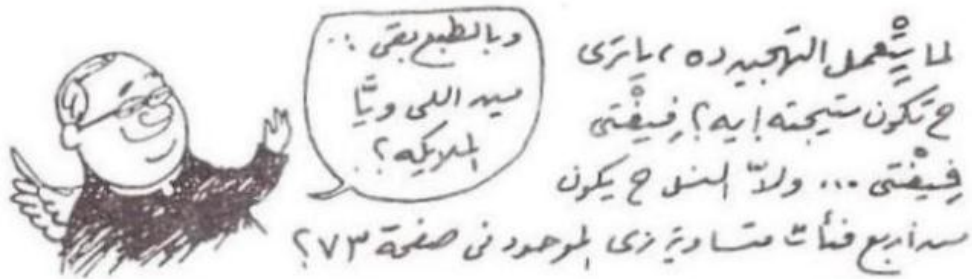 لما يتعمل التهجين ده، يا ترى
ح تكون نتيجته إيه؟ فيفتى
فيفتى ... ولاّ النسل ح يكون
من أربع فئات متساوية زى الموجود فى صفحة ٢٧٣؟
وبالطبع بقى ..
مين اللى ويَّا
الملايكه؟